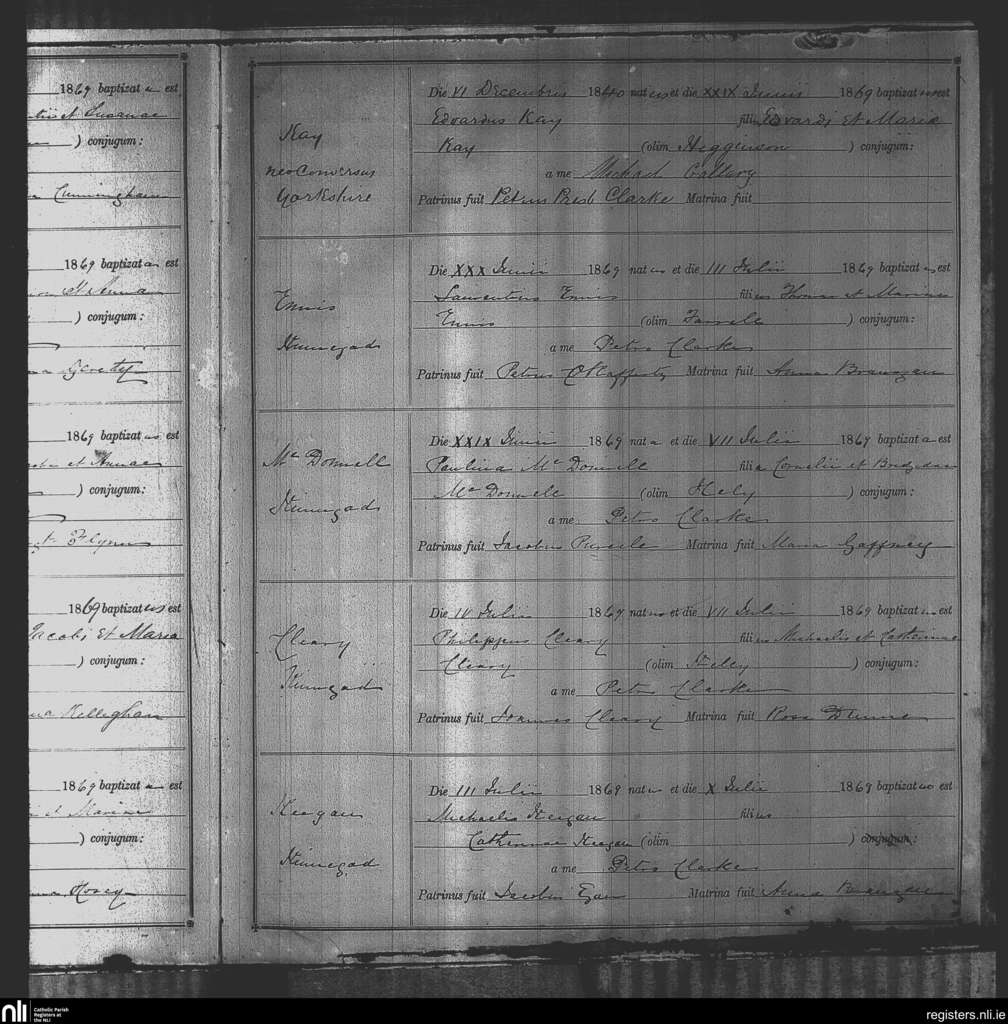 1869 baptizat us est
et Susannae
) conjugum:
Cunningham
1869 baptizat us est
et Anna
) conjugum:
Geraty
1869 baptizat us est
et Annae
) conjugum:
Flynn
1869 baptizat us est
Jacobi Et Maria
) conjugum:
Kelleghan
1869 baptizat est
et Mariae
) conjugum:
Hosey
Kay
neoConversus
Yorkshire
Die VI Decembris 1840 nat us et die XXIX Junii 1869 baptizat us est
Edvardus Kay filiu Edvardi Et Maria
Kay (olim Higginson ) conjugum:
a me Michael Coltury
Patrinus fuit Petrus Presb Clarke Matrina fuit
Ennis
Kinnegad
Die XXX Junii 1869 nat us et die III Julii 1869 baptizat us est
Laurentius Ennis fili us Thomae et Mariae
Ennis (olim Farrell ) conjugum:
a me Petro Clarke
Patrinus fuit Petrus O'Rafferty Matrina fuit Anna Branagan
Mc Donnell
Kinnegad
Die XXIX Junii 1869 nat a et die VII Julii 1869 baptizat a est
Paulina Mc Donnell fili a Cornelii et Bridgidae
Mc Donnell (olim Hely ) conjugum:
a me Petro Clarke
Patrinus fuit Jacobus Pursele Matrina fuit Maria Gaffney
Cleary
Kinnegad
Die IV Julii 1869 nat us et die VII Julii 1869 baptizat us est
Philippus Cleary fili us Michaelis et Catherinae
Cleary (olim Kelly ) conjugum:
a me Petro Clarke
Patrinus fuit Joannes Cleary Matrina fuit Rosa Dunne
Keegan
Kinnegad
Die III Julii 1869 nat us et die X Julii 1869 baptizat us est
Michaelis Keegan fili us
Catherinae Keegan (olim ) conjugum:
a me Petro Clarke
Patrinus fuit Jacobus Egan Matrina fuit Anna Branagan
nli Catholic Parish
Registers at
the NLI
registers.nli.ie